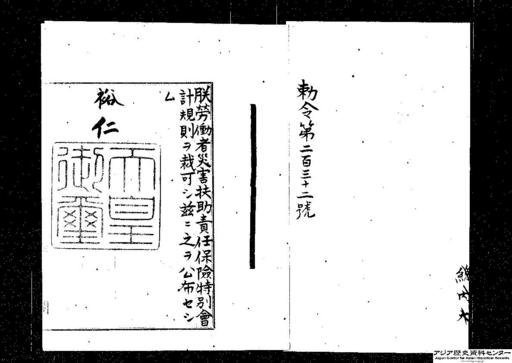 勅令第二百三十二號
朕勞働者災害扶助責任保險特別會
計規則ヲ裁可シ茲ニ之ヲ公布セシ
ム
裕仁
天皇
御璽
アジア歴史資料センター
Japan Center for Asian Historical Records